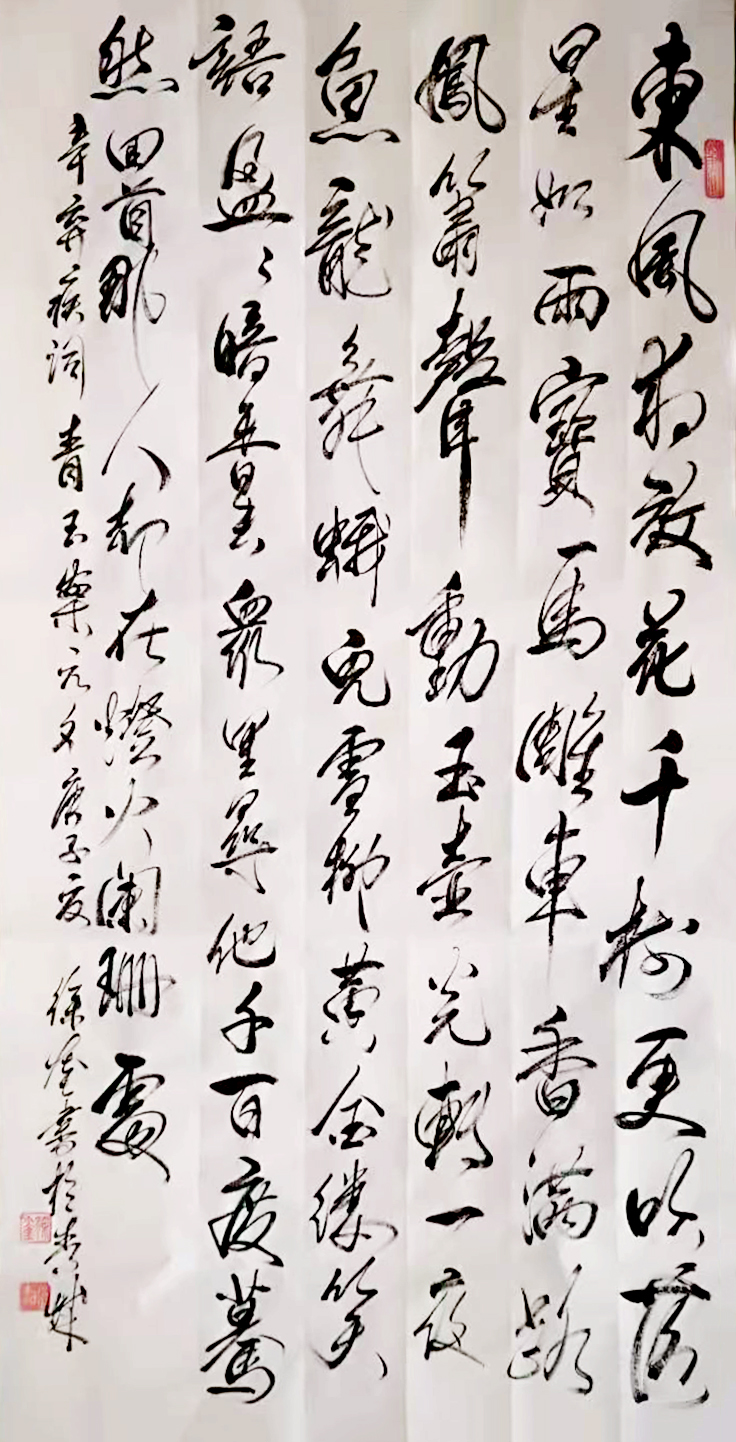 東風夜放花千樹更吹落
星如雨寶馬雕車香滿路
鳳簫聲動玉壺光轉一夜
魚龍舞蛾兒雪柳黃金縷笑
語盈々暗香去眾里尋他千百度驀
然回首那人却在燈火闌珊處
辛棄疾詞青玉案元夕庚子夏 徐奎書於